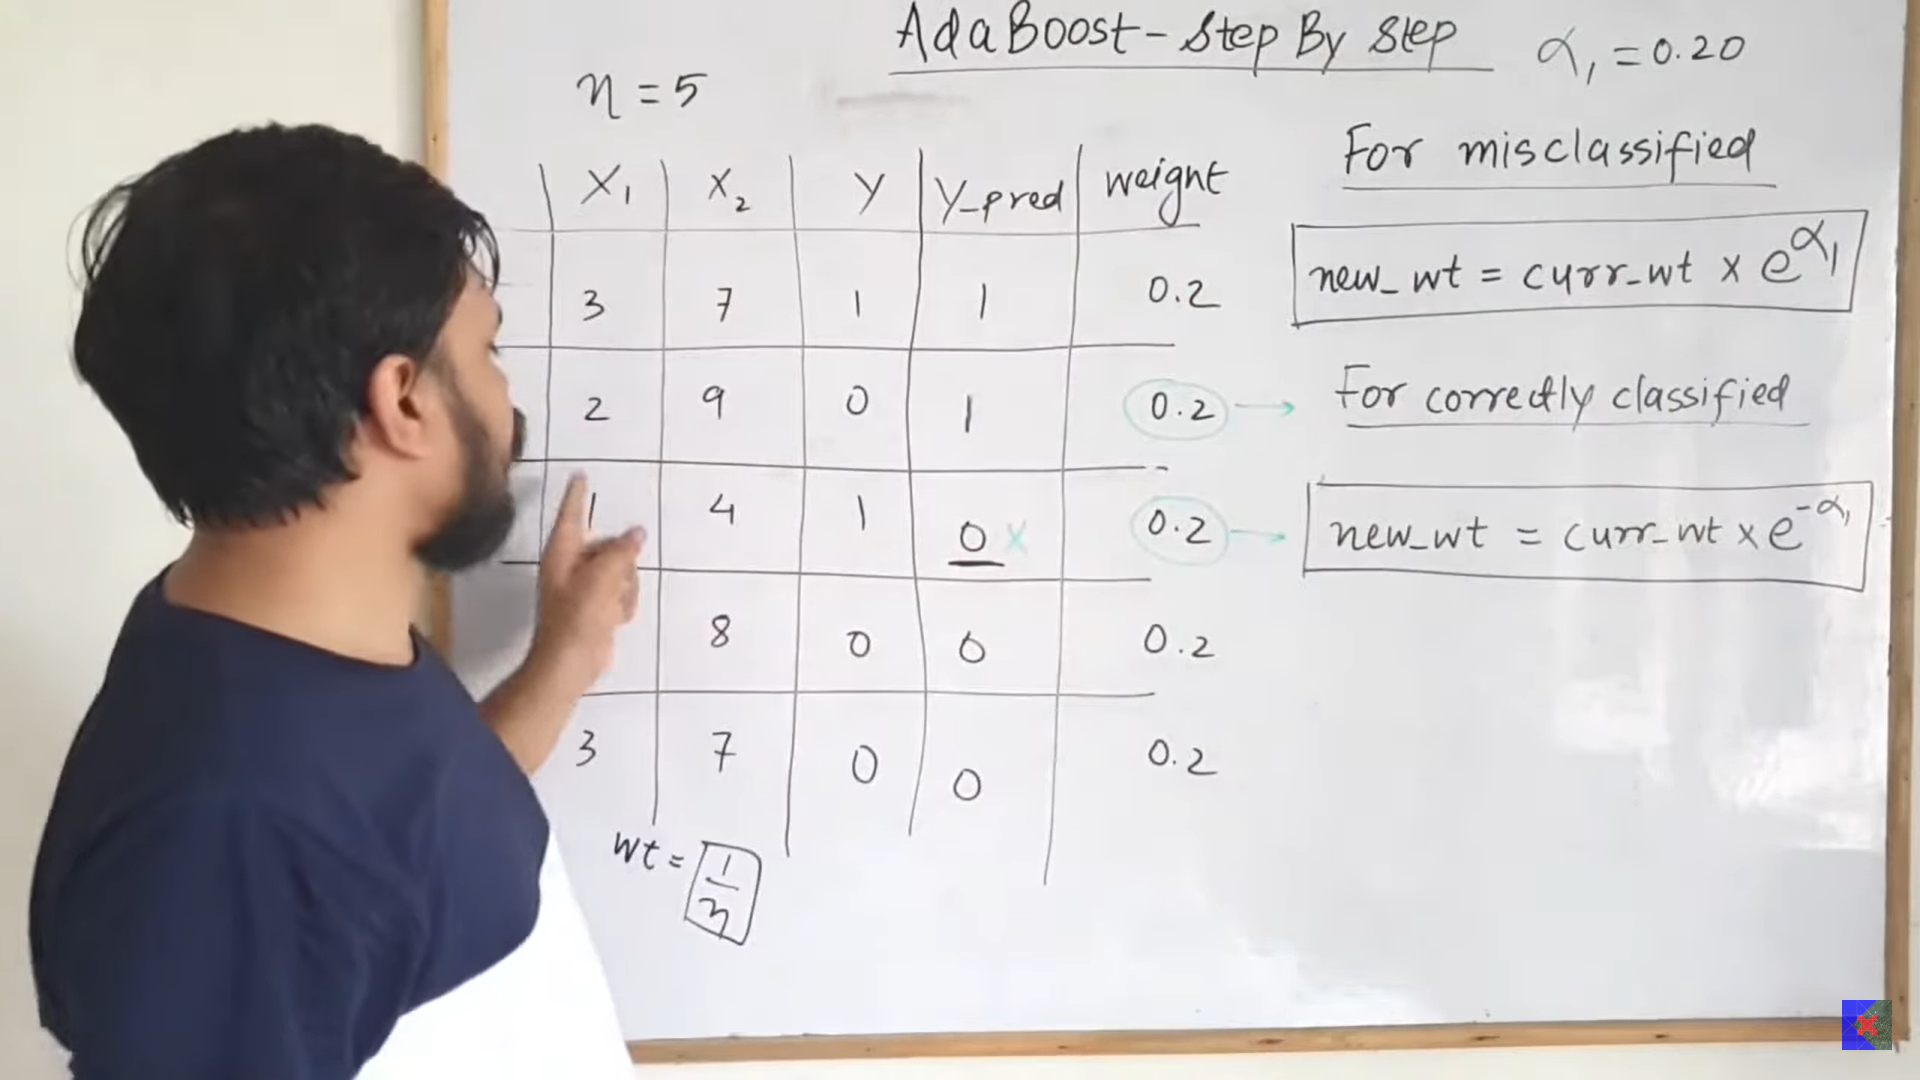 AdaBoost - Step By Step
α₁ = 0.20
n = 5
X₁ X₂ Y Y_pred weight
3 7 1 1 0.2
2 9 0 1 0.2 →
1 4 1 0 x 0.2 →
8 0 0 0.2
3 7 0 0 0.2
wt = 1/n
For misclassified
new_wt = curr_wt x e^α₁
For correctly classified
new_wt = curr_wt x e^-α₁